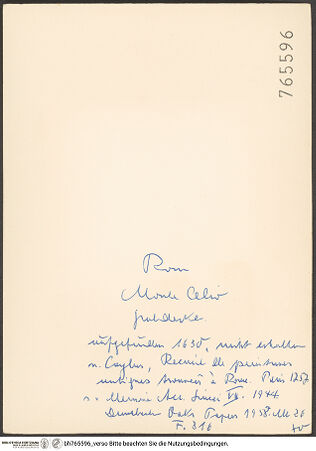 765596
Rom
Monte Celio
Grabdecke.
aufgefunden 1639, nicht erhalten
n. Caylus, Recueil de peintures
antiques trouvées à Rome. Paris 1757
s. Memorie Acc. Lincei VII. 1944
Dumbarton Oaks Papers 1958.
F. 216
bh765596_verso Bitte beachten Sie die Nutzungsbedingungen.